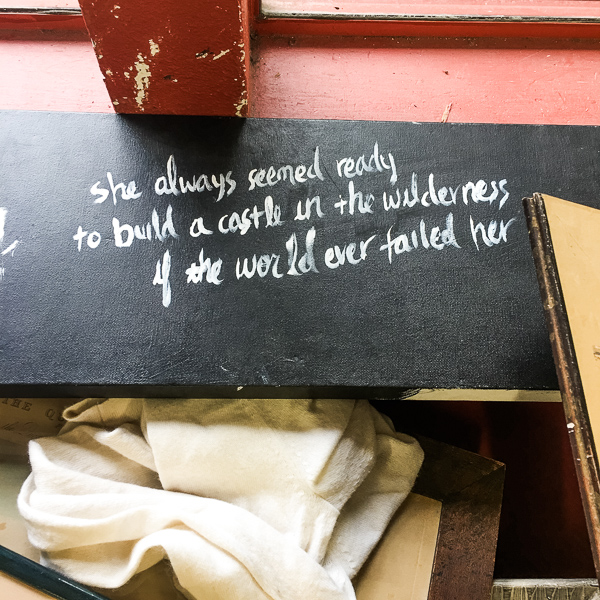 she always seemed ready
to build a castle in the wilderness
if the world ever failed her
THE